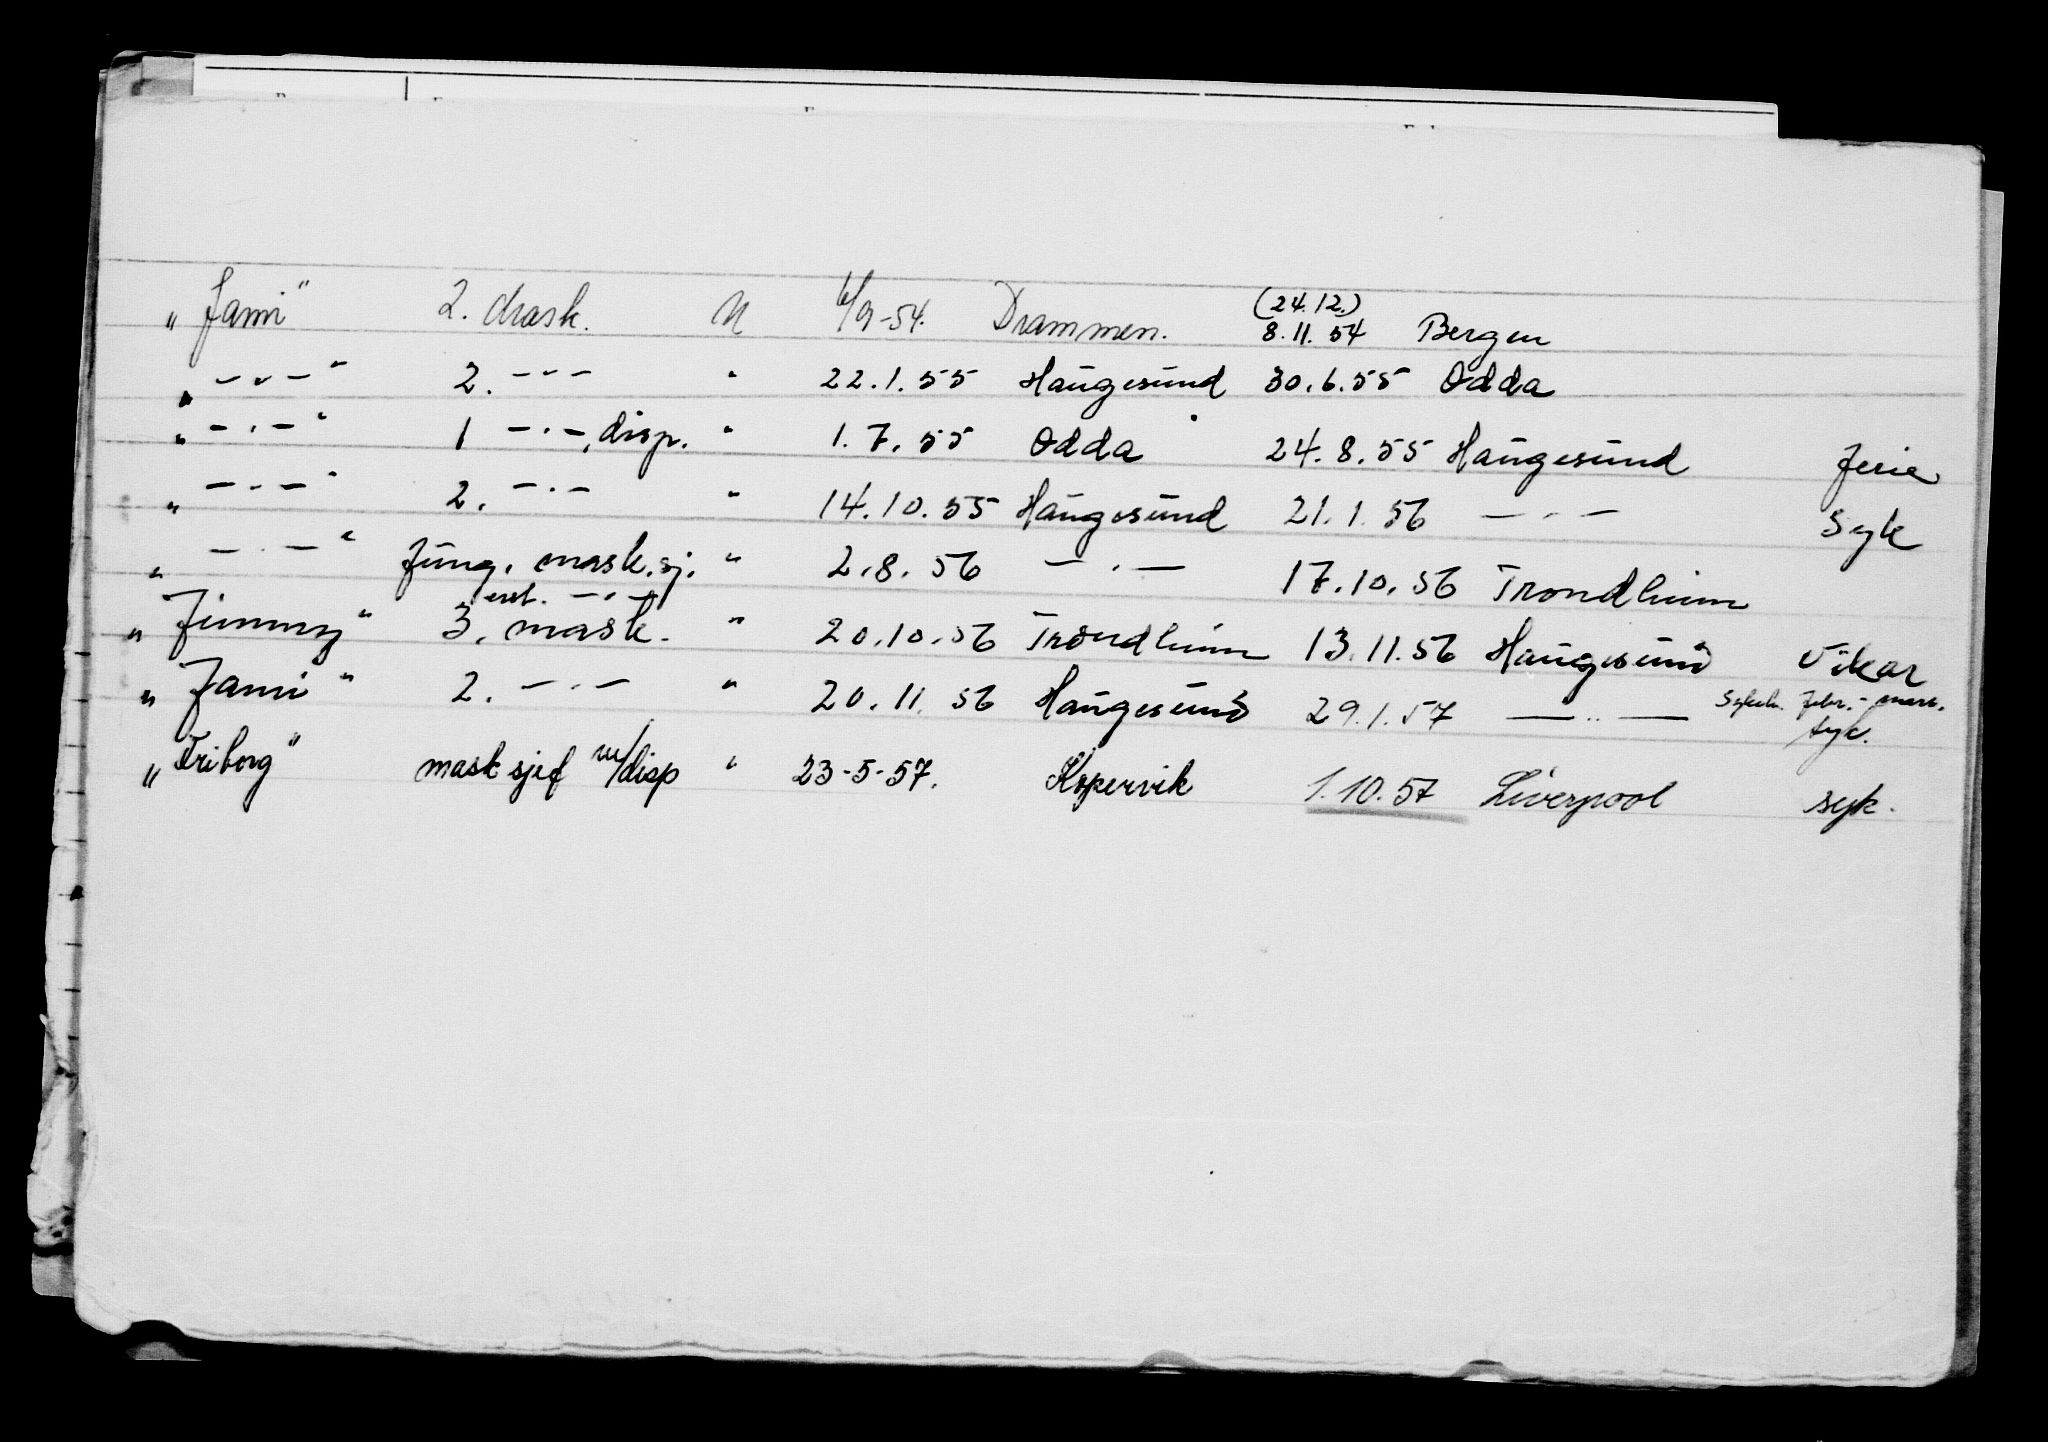 (24.12.)
„Jami" 2. Mask. N 6/9-54. Drammen. 8.11.54 Bergen
„ — " — " 2. - - - " 22.1.55 Haugesund 30.6.55 Odda
„ — . — " 1 — . —, disp. " 1.7.55 Odda 24.8.55 Haugesund Ferie
„ — . — " 2. — . — " 14.10.55 Haugesund 21.1.56 — . — Syk
„ — . — " Fung. mask.sj. " 2.8.56 — . — 17.10.56 Trondheim
„Jimmy" 3. mask. " 20.10.56 Trondheim 13.11.56 Haugesund Vikar
„Jami" 2. — . — " 20.11.56 Haugesund 29.1.57 — .. — Febr. - mars.
syk.
„Friborg" mask sjef m/disp " 23-5-57. Kopervik 1.10.57 Liverpool syk.